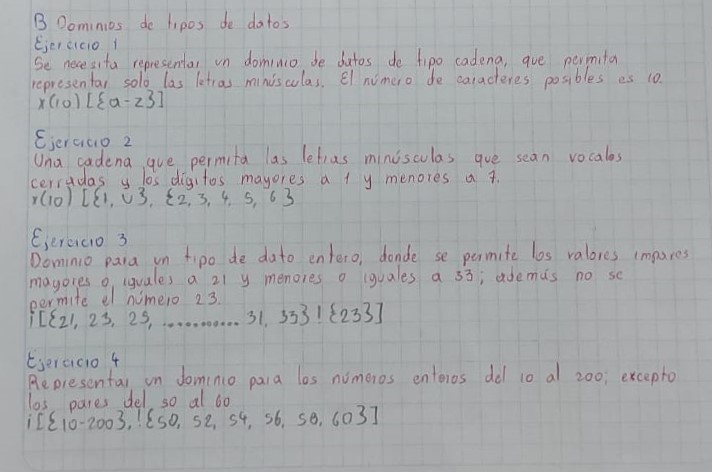 B Dominios de tipos de datos
Ejercicio 1
Se necesita representar un dominio de datos de tipo cadena, que permita
representar solo las letras minúsculas. El número de caracteres posibles es 10.
x(10) [{a-z}]
Ejercicio 2
Una cadena que permita las letras minúsculas que sean vocales
cerradas y los dígitos mayores a 1 y menores a 7.
x(10) [{i, u}, {2, 3, 4, 5, 6}
Ejercicio 3
Dominio para un tipo de dato entero, donde se permite los valores impares
mayores o iguales a 21 y menores o iguales a 33; además no se
permite el número 23.
i[{21, 23, 25, ............ 31, 33}!{23}]
Ejercicio 4
Representar un dominio para los números enteros del 10 al 200; excepto
los pares del 50 al 60
i[{10-200}, !{50, 52, 54, 56, 58, 60}]